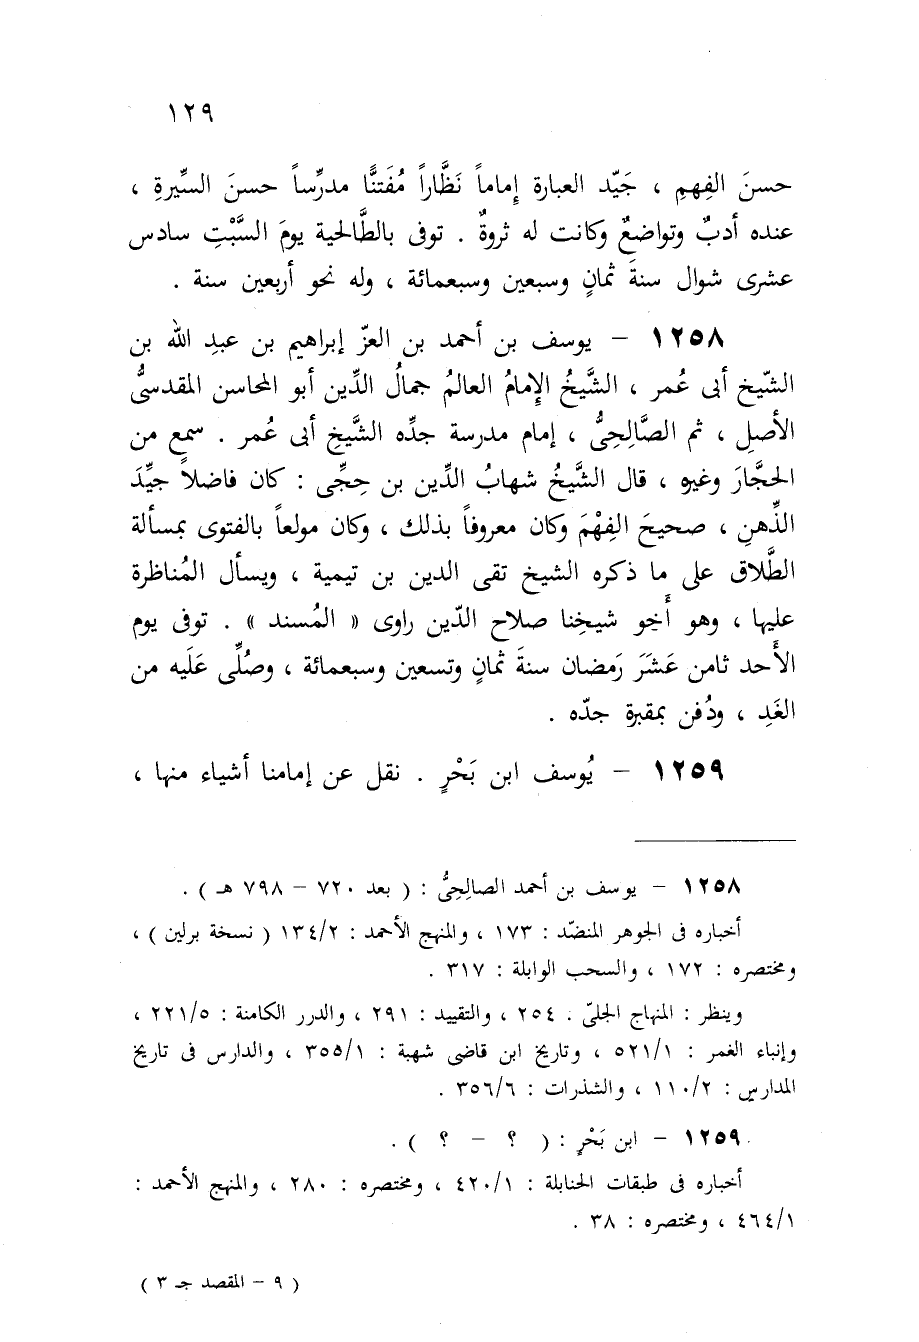 ١٢٩
حسنَ الفِهمِ ، جَيّد العبارة إِماماً نَظَّاراً مُفَتنًّا مدرِّساً حسنَ السِّيرةِ ،
عنده أدبٌ وتواضعٌ وكانت له ثروةٌ . توفى بالطَّالحية يومَ السَّبْتِ سادس
عشرى شوال سنةَ ثمانٍ وسبعين وسبعمائة ، وله نحو أربعين سنة .
١٢٥٨ – يوسف بن أحمد بن العزّ إبراهيم بن عبدِ الله بن
الشّيخ أبى عُمر ، الشَّيخُ الإمامُ العالمُ جمالُ الدِّين أبو المحاسن المقدسىُّ
الأصلِ ، ثم الصَّالِحِىُّ ، إمام مدرسة جدِّه الشَّيخِ أبى عُمر . سمع من
الحجَّارَ وغيره ، قال الشَّيخُ شهابُ الدِّين بن حِجِّى : كان فاضلاً جيِّدَ
الذِّهنِ ، صحيحَ الفِهْمَ وكان معروفاً بذلك ، وكان مولعاً بالفتوى بمسألة
الطَّلاق على ما ذكره الشيخ تقى الدين بن تيمية ، ويسأل المُناظرة
عليها ، وهو أَخو شيخِنا صلاح الدّين راوى « المُسند » . توفى يوم
الأَحد ثامن عَشَرَ رَمضان سنةَ ثمانٍ وتسعين وسبعمائة ، وصُلِّى عَلَيه من
الغَدِ ، ودُفن بمقبرة جدّه .
١٢٥٩ – يُوسف ابن بَحْرٍ . نقل عن إمامنا أشياء منها ،
١٢٥٨ – يوسف بن أحمد الصالحِىُّ : ( بعد ٧٢٠ – ٧٩٨ هـ ) .
أخباره فى الجوهر المنضّد : ١٧٣ ، والمنهج الأحمد : ١٣٤/٢ ( نسخة برلين ) ،
ومختصره : ١٧٢ ، والسحب الوابلة : ٣١٧ .
وينظر : المنهاج الجلىّ . ٢٥٤ ، والتقييد : ٢٩١ ، والدرر الكامنة : ٢٢١/٥ ،
وإنباء الغمر : ٥٢١/١ ، وتاريخ ابن قاضى شهبة : ٣٥٥/١ ، والدارس فى تاريخ
المدارس : ١١٠/٢ ، والشذرات : ٣٥٦/٦ .
١٢٥٩ – ابن بَحْرٍ : ( ؟ – ؟ ) .
أخباره فى طبقات الحنابلة : ٤٢٠/١ ، ومختصره : ٢٨٠ ، والمنهج الأحمد :
٤٦٤/١ ، ومختصره : ٣٨ .
( ٩ – المقصد جـ ٣ )